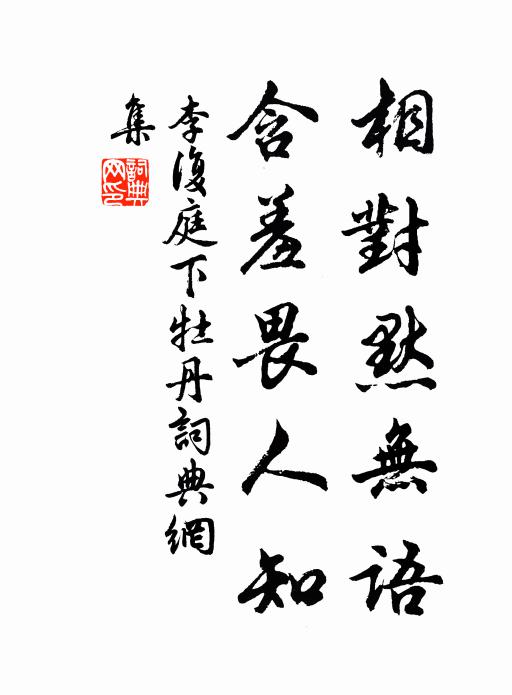 相對默無語
含羞畏人知
李復庭下牡丹詞典網
集
詞典
网印